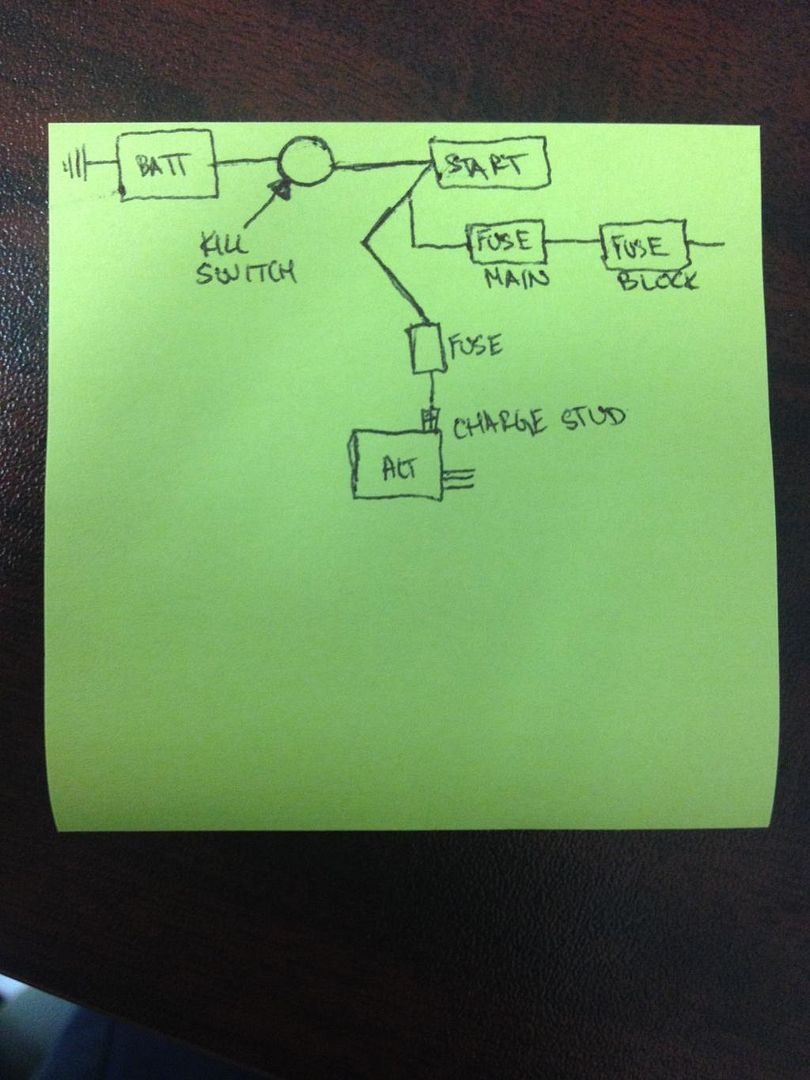 BATT
START
KILL
SWITCH
FUSE
MAIN
FUSE
BLOCK
FUSE
CHARGE STUD
ALT